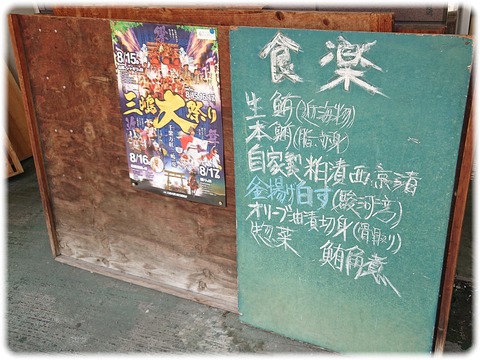 8/15
三嶋大祭り
8/16
8/17
食楽
生鮪(近海物)
本鮪(脂赤身)
自家製 粕漬 西京漬
釜揚げ白す(駿河湾)
オリーブ油漬切身(骨取り)
惣菜 鮪角煮